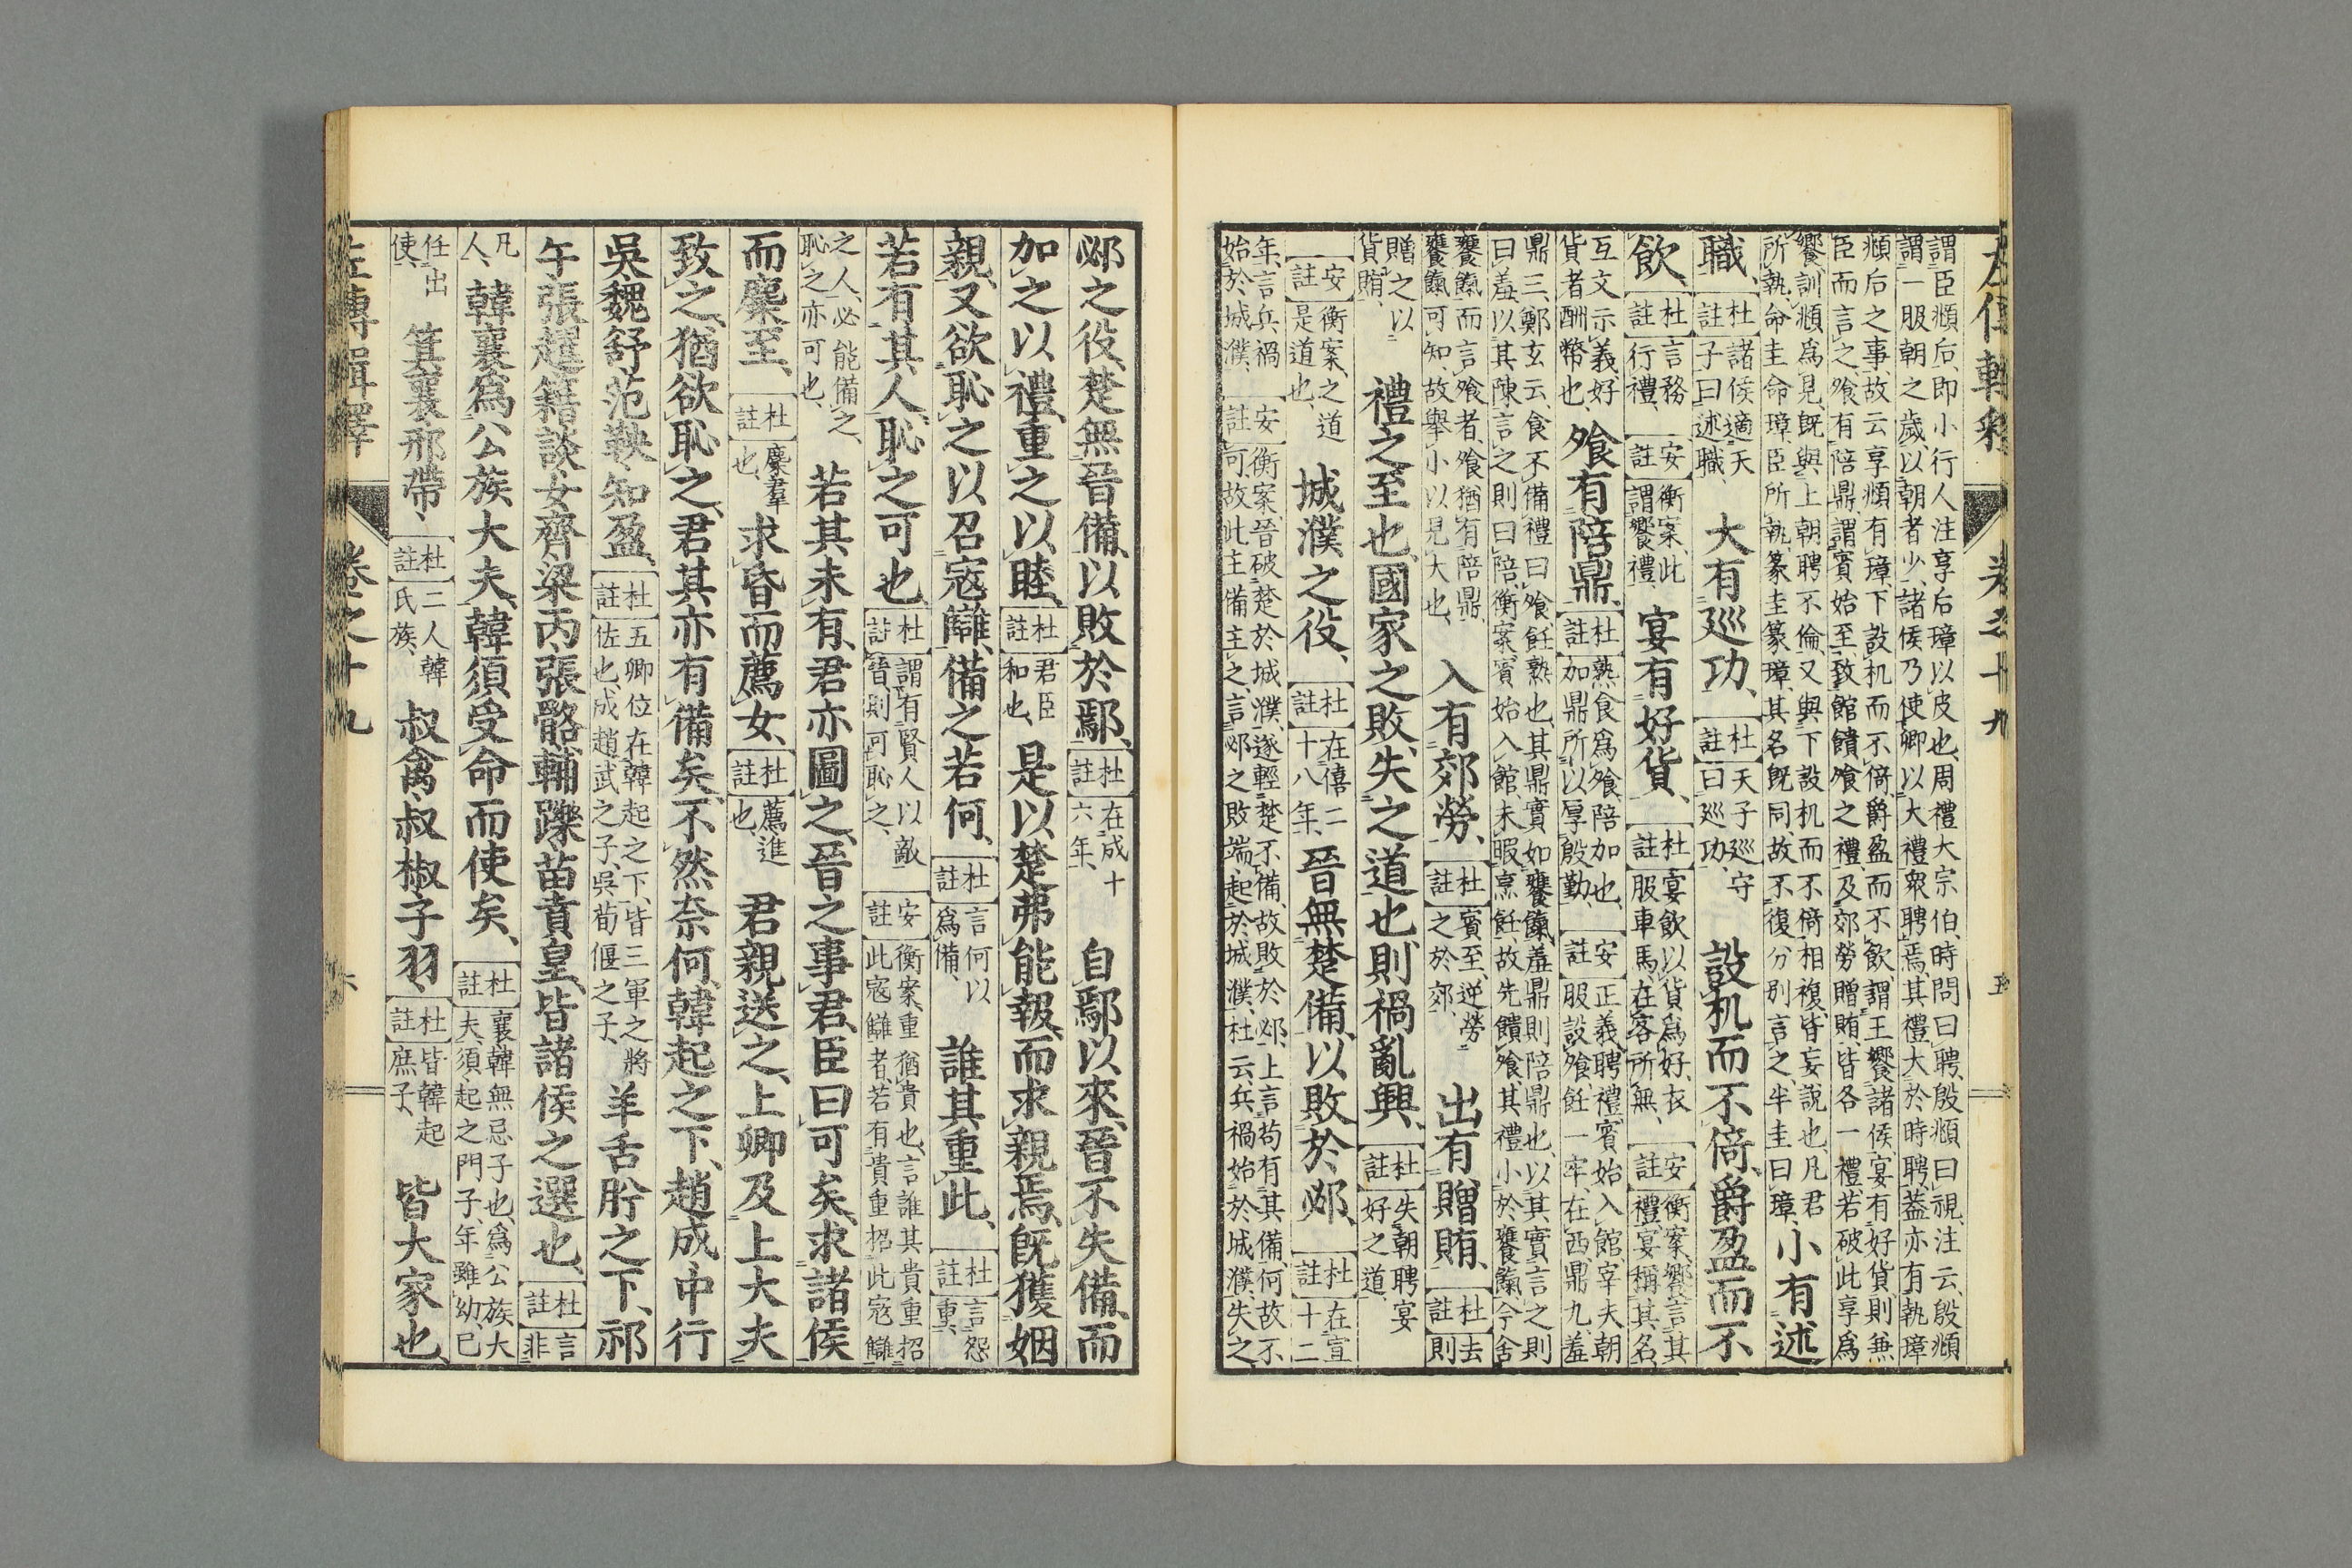 謂臣頫后、即小行人注、享后璋以皮也、周禮大宗伯、時問曰聘、殷頫曰視、注云、殷頫
謂一服朝之歲、以朝者少、諸侯乃使卿以大禮衆聘焉、其禮大於時聘、蓋亦有執璋
頫后之事、故云享頫有璋、下設机而不倚、爵盈而不飲、謂王饗諸侯、宴有好貨、則兼
臣而言之、飧有陪鼎、謂賓始至、致館饋飧之禮、及郊勞贈賄、皆各一禮、若破此享爲
饗、訓頫爲見、既與上朝聘不倫、又與下設机而不倚相複、皆妄說也、凡君
所執、命圭命璋、臣所執、篆圭篆璋、其名既同、故不復分別言之、半圭曰璋、
小有述
職、
杜註
諸侯適天
子曰述職、
大有巡功、
杜註
天子巡守
曰巡功、
設机而不倚、爵盈而不
飲、
杜註
言務
行禮、
安註
衡案、此
謂饗禮、
宴有好貨、
杜註
宴飲以貨爲好、衣
服車馬、在客所無、
安註
衡案、饗言其
禮、宴稱其名、
互文示義、好
貨者酬幣也、
飧有陪鼎、
杜註
熟食爲飧、陪加也、
加鼎所以厚殷勤、
安註
正義、聘禮賓始入館、宰夫朝
服設飧、飪一牢、在西、鼎九、羞
鼎三、鄭玄云、食不備禮曰飧、飪熟也、其鼎實如饔餼、羞鼎則陪鼎也、以其實言之則
曰羞、以其陳言之則曰陪、衡案、賓始入館、未暇烹飪、故先饋飧、其禮小於饔餼、今舍
饔餼而言飧者、飧猶有陪鼎、
饔餼可知、故舉小以見大也、
入有郊勞、
杜註
賓至、逆勞
之於郊、
出有贈賄、
杜註
去則
贈之以
貨賄、
禮之至也、國家之敗、失之道也、則禍亂興、
杜註
失朝聘宴
好之道、
安註
衡案、之道
是道也、
城濮之役、
杜註
在僖二
十八年、
晉無楚備、以敗於邲、
杜註
在宣
十二
年、言兵禍
始於城濮、
安註
衡案、晉破楚於城濮、遂輕楚不備、故敗於邲、上言苟有其備、何故不
可、故此主備主之、言邲之敗端、起於城濮、杜云、兵禍始於城濮、失之、
邲之役、楚無晉備、以敗於鄢、
杜註
在成十
六年、
自鄢以來、晉不失備、而
加之以禮、重之以睦、
杜註
君臣
和也、
是以楚弗能報、而求親焉、既獲姻
親、又欲恥之以召寇讎、備之若何、
杜註
言何以
爲備、
誰其重此、
杜註
言怨
重、
若有其人、恥之可也、
杜註
謂有賢人以敵
晉、則可恥之、
安註
衡案、重猶貴也、言誰其貴重招
此寇讎者、若有貴重招此寇讎
之人、必能備之、
恥之亦可也、
若其未有、君亦圖之、晉之事君、臣曰可矣、求諸侯
而麇至、
杜註
麇羣
也、
求昏而薦女、
杜註
薦進
也、
君親送之、上卿及上大夫
致之、猶欲恥之、君其亦有備矣、不然奈何、韓起之下、趙成、中行
吳、魏舒、范鞅、知盈、
杜註
五卿位在韓起之下、皆三軍之將
佐也、成趙武之子、吳荀偃之子、
羊舌肸之下、祁
午、張趯、籍談、女齊、梁丙、張骼、輔躒、苗賁皇、皆諸侯之選也、
杜註
言非
凡
人、
韓襄爲公族大夫、韓須受命而使矣、
杜註
襄韓無忌子也、爲公族大
夫、須起之門子、年雖幼、已
任出
使、
箕襄、邢帶、
杜註
二人韓
氏族、
叔禽、叔椒、子羽、
杜註
皆韓起
庶子、
皆大家也、
左傳輯釋 卷之十九 六